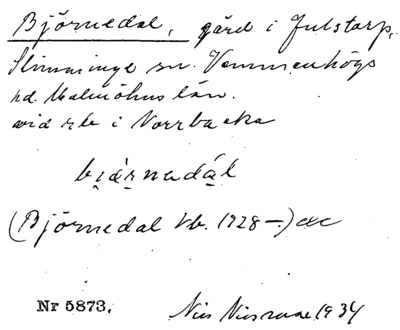 Björnedal, gård i Julstorp,
Slimminge sn. Vemmenhögs
hd. Malmöhus län.
vid rå i Norrbacka
bjärnadal
(Björnedal kb. 1728 –) etc
Nr 5873. Nils 1934